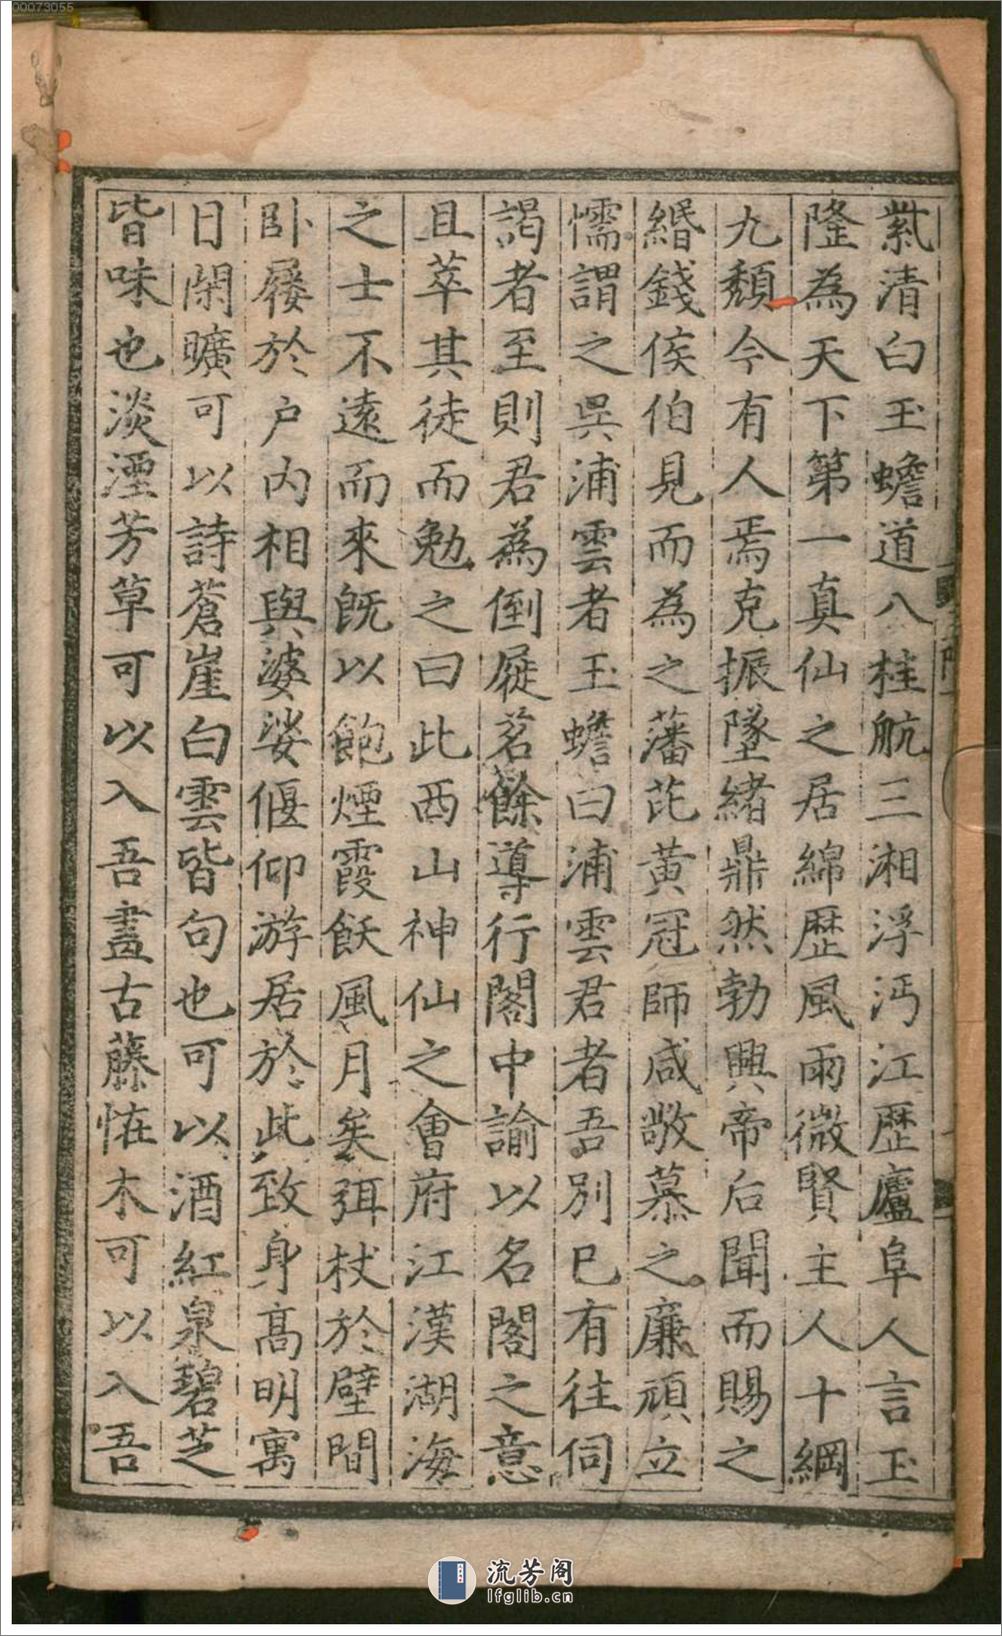 00073055
紫清白玉蟾道八桂航三湘浮沔江歷廬阜人言玉
隆為天下第一真仙之居綿歷風雨微賢主人十綱
九頹今有人焉克振墜緒鼎然勃興帝后聞而賜之
緡錢侯伯見而為之藩芘黃冠師咸敬慕之廉頑立
懦謂之吳浦雲者玉蟾曰浦雲君者吾別巳有往伺
謁者至則君為倒屣茗餘導行閣中諭以名閣之意
且萃其徒而勉之曰此西山神仙之會府江漢湖海
之士不遠而來旣以飽煙霞飫風月矣弭杖於壁間
卧屨於户內相與婆娑偃仰游居於此致身高明寓
目閑曠可以詩蒼崖白雲皆句也可以酒紅泉碧芝
皆味也淡湮芳草可以入吾畫古藤恠木可以入吾
流芳阁
lfglib.cn